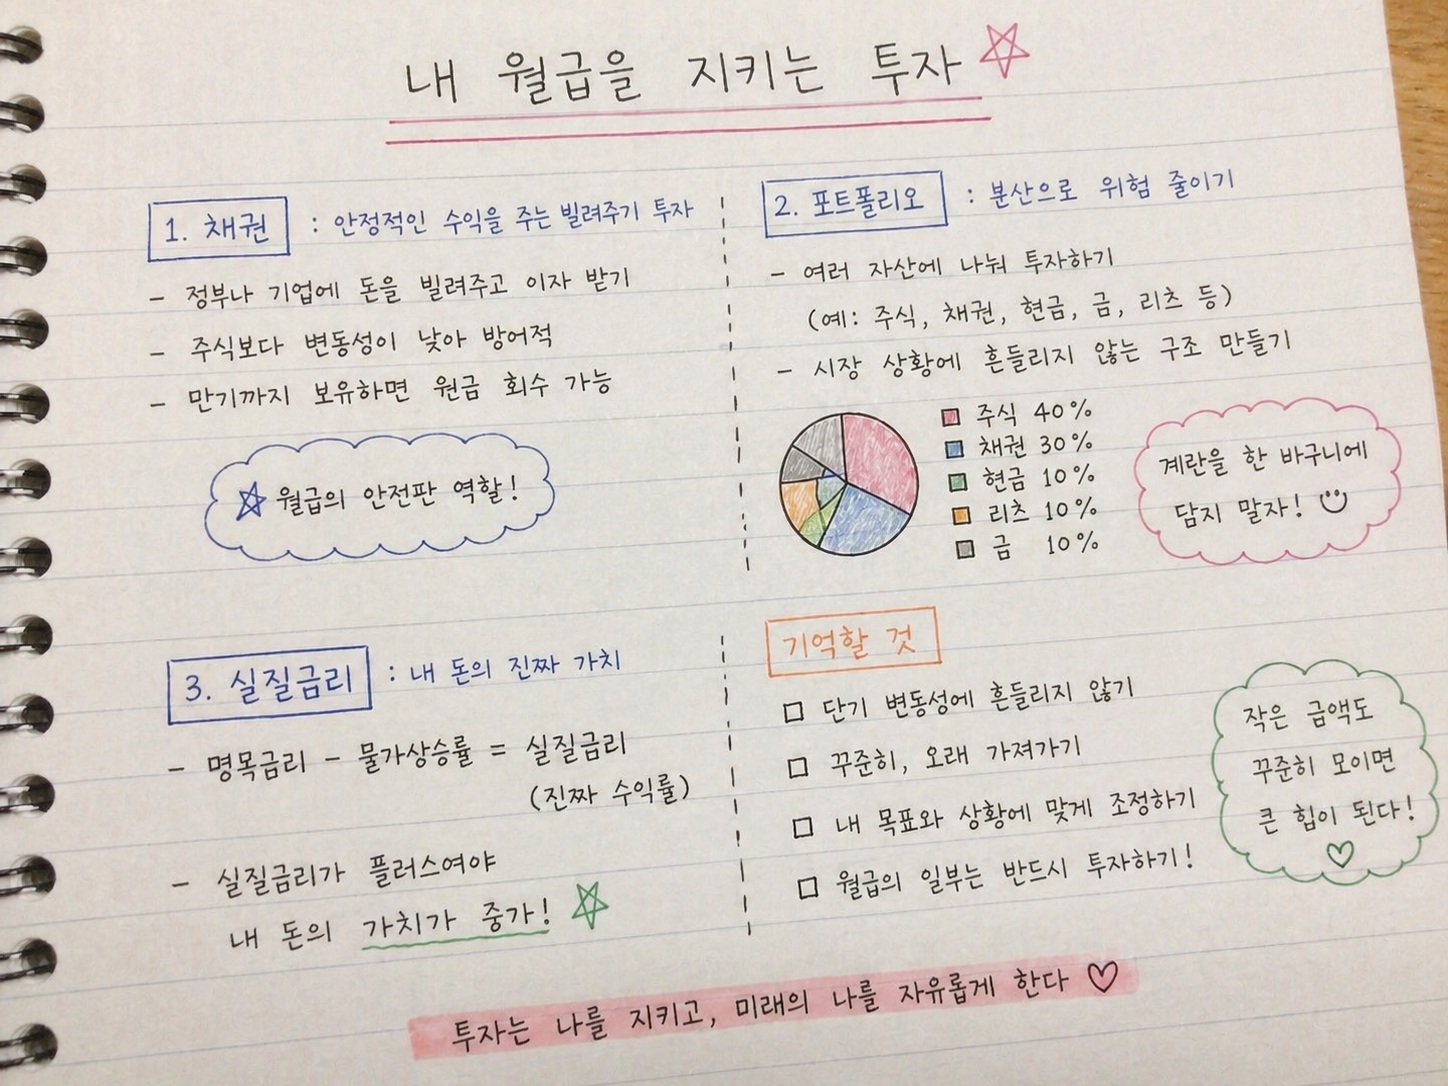 내 월급을 지키는 투자
1. 채권 : 안정적인 수익을 주는 빌려주기 투자
- 정부나 기업에 돈을 빌려주고 이자 받기
- 주식보다 변동성이 낮아 방어적
- 만기까지 보유하면 원금 회수 가능
월급의 안전판 역할!
2. 포트폴리오 : 분산으로 위험 줄이기
- 여러 자산에 나눠 투자하기
(예: 주식, 채권, 현금, 금, 리츠 등)
- 시장 상황에 흔들리지 않는 구조 만들기
주식 40%
채권 30%
현금 10%
리츠 10%
금 10%
계란을 한 바구니에
담지 말자!
3. 실질금리 : 내 돈의 진짜 가치
- 명목금리 - 물가상승률 = 실질금리
(진짜 수익률)
- 실질금리가 플러스여야
내 돈의 가치가 중가!
기억할 것
□ 단기 변동성에 흔들리지 않기
□ 꾸준히, 오래 가져가기
□ 내 목표와 상황에 맞게 조정하기
□ 월급의 일부는 반드시 투자하기!
작은 금액도
꾸준히 모이면
큰 힘이 된다!
투자는 나를 지키고, 미래의 나를 자유롭게 한다